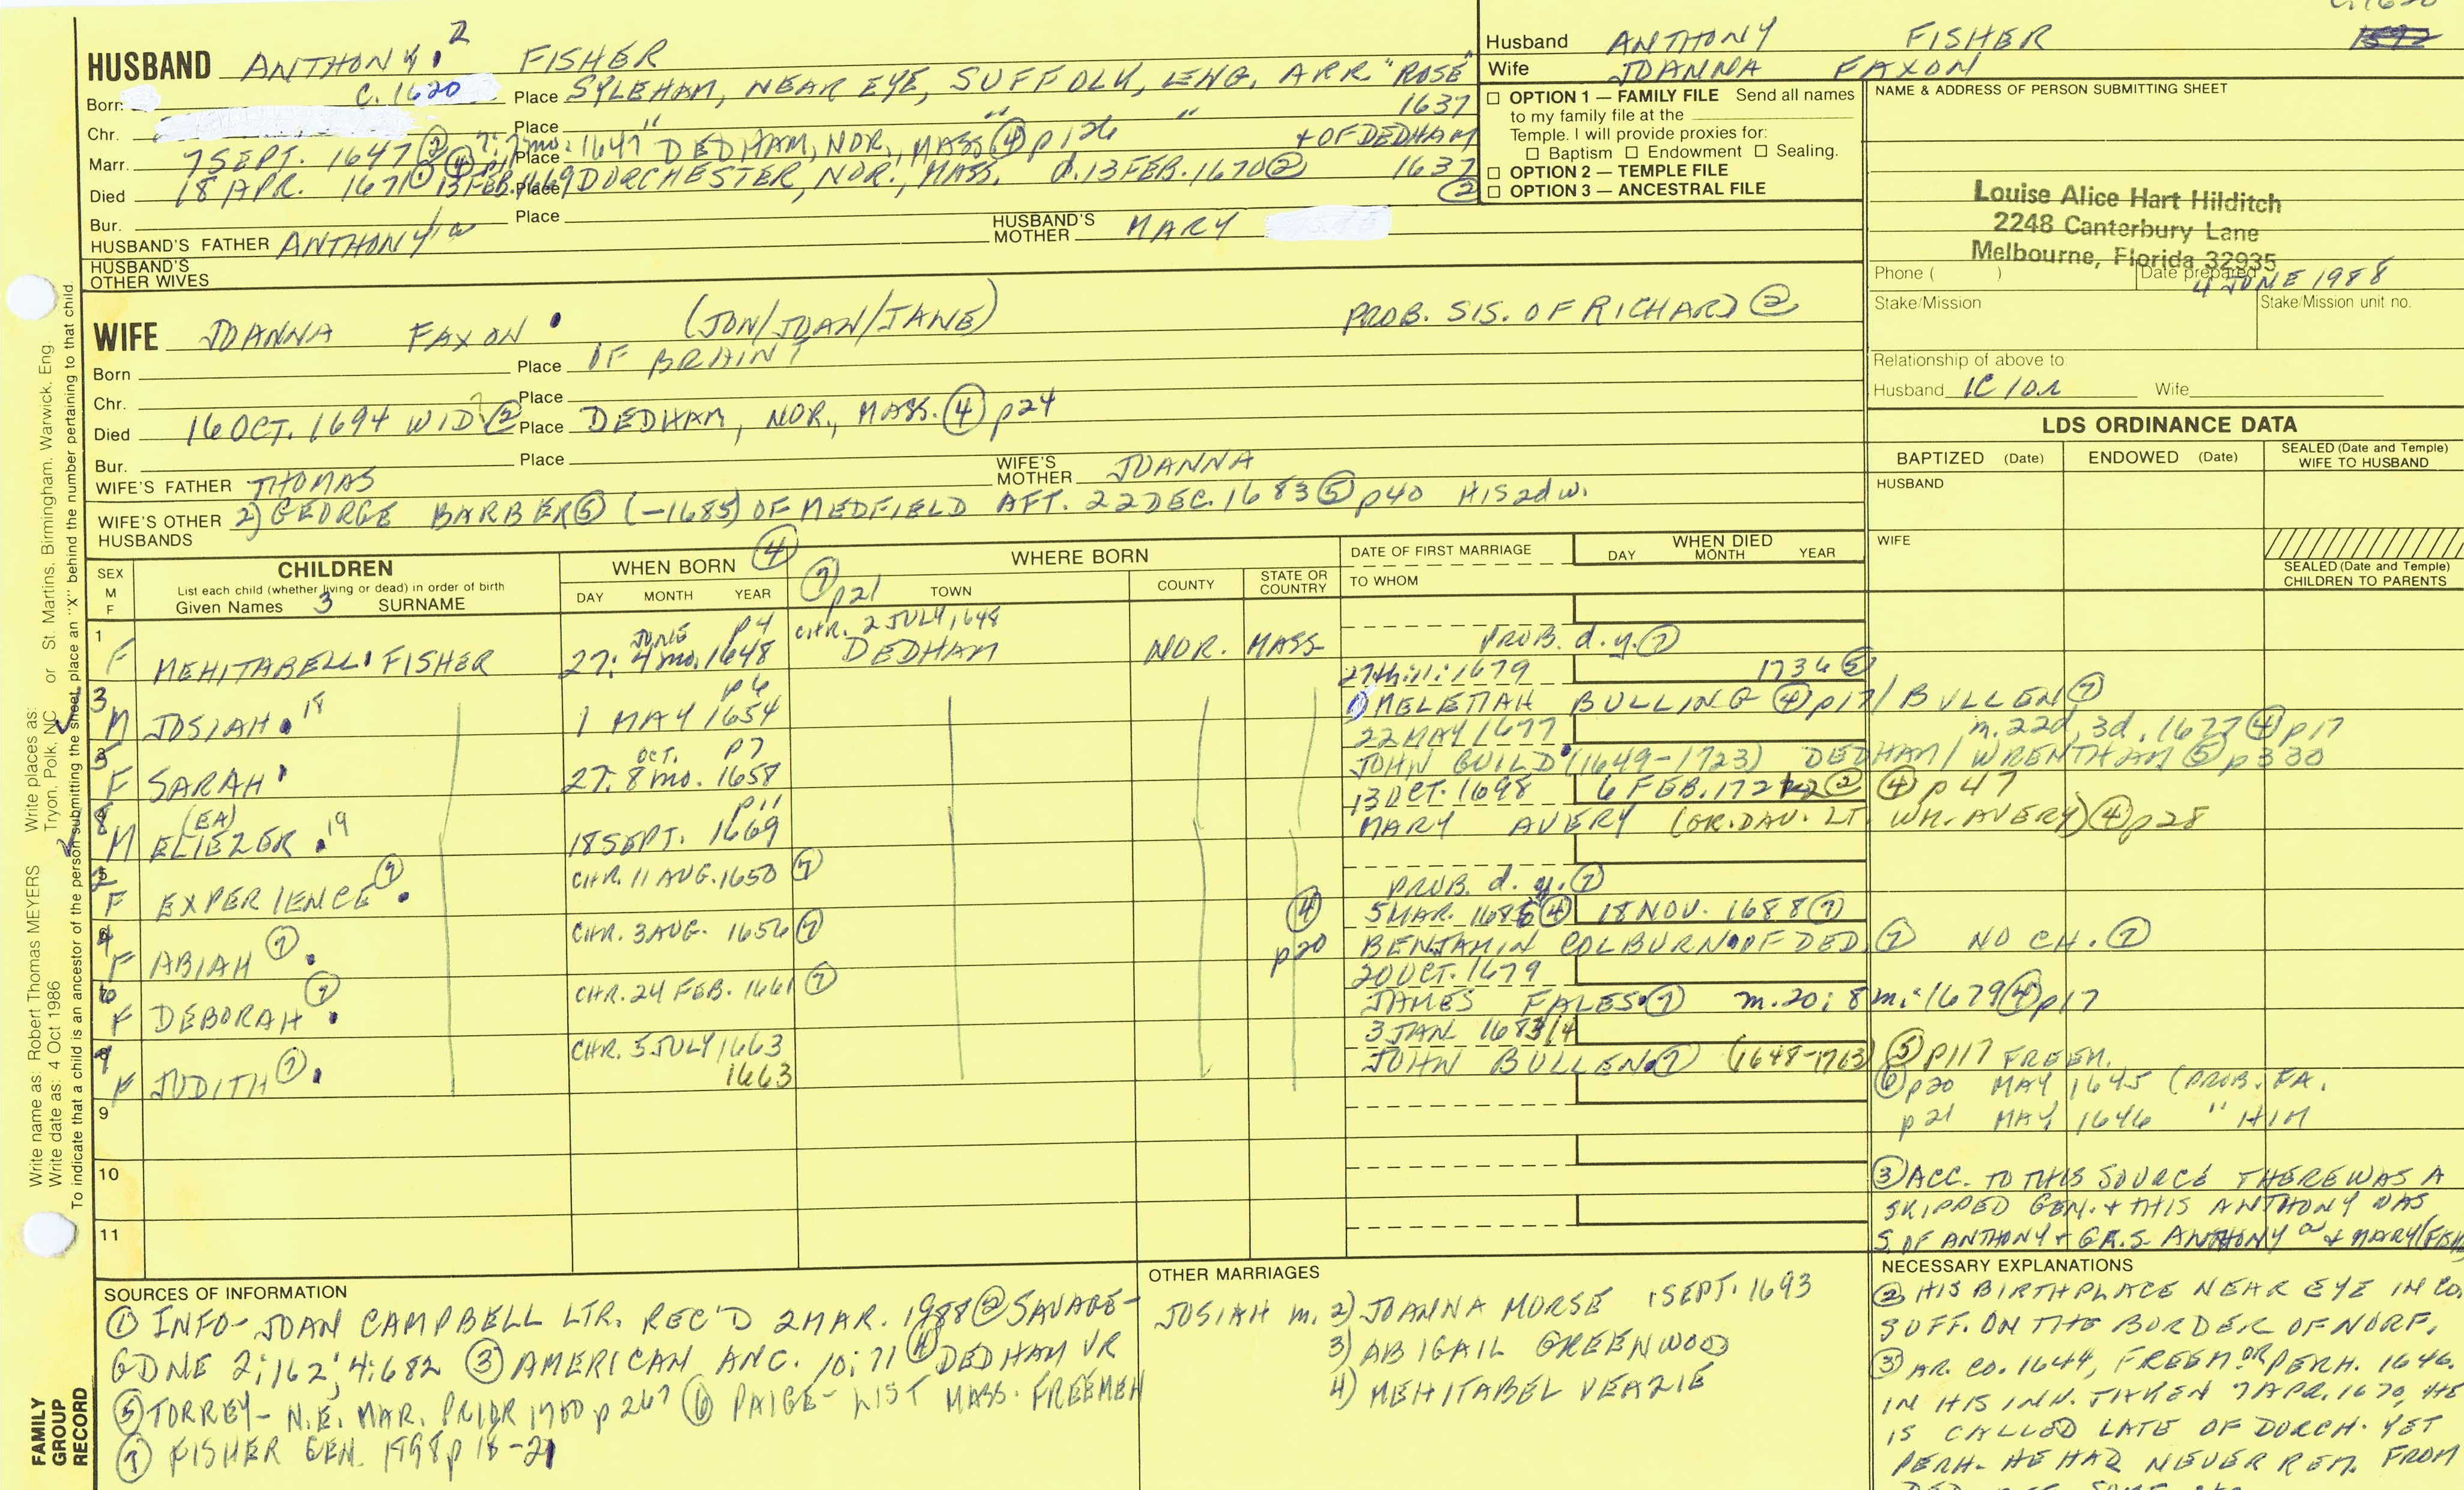 HUSBAND ANTHONY 2 FISHER
Born: C. 1620 Place SYLEHAM, NEAR EYE, SUFFOLK, ENG. ARR. "ROSE"
Chr. Place " " " 1637
Marr. 7 SEPT. 1647 ② 7: 7 mo. 1647 Place DEDHAM, NOR., MASS ④ p126 + OF DEDHAM
Died 18 APR. 1671 ① 13 FEB. 1669 Place DORCHESTER, NOR., MASS. d. 13 FEB. 1670 ② 1637 ②
Bur. Place
HUSBAND'S FATHER ANTHONY HUSBAND'S MOTHER MARY
HUSBAND'S OTHER WIVES
WIFE JOANNA FAXON (JON/JOAN/JANE) PROB. SIS. OF RICHARD ②
Born Place OF BRAINT
Chr. Place
Died 16 OCT. 1694 WID ? ② Place DEDHAM, NOR., MASS. ④ p24
Bur. Place
WIFE'S FATHER THOMAS WIFE'S MOTHER JOANNA
WIFE'S OTHER HUSBANDS 2) GEORGE BARBER ⑤ (-1685) OF MEDFIELD AFT. 22 DEC. 1683 ⑤ p40 HIS 2d w.
Husband ANTHONY FISHER 1592
Wife JOANNA FAXON
☐ OPTION 1 — FAMILY FILE Send all names
to my family file at the
Temple. I will provide proxies for:
☐ Baptism ☐ Endowment ☐ Sealing.
☐ OPTION 2 — TEMPLE FILE
☐ OPTION 3 — ANCESTRAL FILE
NAME & ADDRESS OF PERSON SUBMITTING SHEET
Louise Alice Hart Hilditch
2248 Canterbury Lane
Melbourne, Florida 32935
Phone ( ) Date prepared 4 JUNE 1988
Stake/Mission Stake/Mission unit no.
Relationship of above to
Husband Wife
LDS ORDINANCE DATA
BAPTIZED (Date) ENDOWED (Date) SEALED (Date and Temple) WIFE TO HUSBAND
HUSBAND
WIFE
SEALED (Date and Temple) CHILDREN TO PARENTS
SEX M F
CHILDREN
List each child (whether living or dead) in order of birth
Given Names 3 SURNAME
WHEN BORN ④
DAY MONTH YEAR
WHERE BORN
⑦ p21 TOWN COUNTY STATE OR COUNTRY
DATE OF FIRST MARRIAGE
TO WHOM
WHEN DIED
DAY MONTH YEAR
1 F MEHITABELL FISHER JUNE p4 27: 4 mo. 1648 CHR. 2 JULY, 1648 DEDHAM NOR. MASS PROB. d. y. ⑦
3 M JOSIAH 18 p6 1 MAY 1654 27th: 11: 1679 1736 ⑤
MELETIAH BULLING ④ p17 / BULLEN ⑦
F SARAH OCT. p7 27: 8 mo. 1658 22 MAY 1677 m. 22d, 3d, 1677 ④ p17
JOHN GUILD (1649-1723) DEDHAM/WRENTHAM ⑤ p330
8 M (EA) ELIEZER 19 p11 18 SEPT. 1669 13 OCT. 1698 6 FEB. 172 ② ④ p47
MARY AVERY (GR. DAU. LT. WM. AVERY) ④ p28
2 F EXPERIENCE ⑦ CHR. 11 AUG. 1650 ⑦ PROB. d. y. ⑦
4 F ABIAH ⑦ CHR. 3 AUG. 1656 ⑦ ④ p20 5 MAR. 1685 ④ 18 NOV. 1688 ⑦
BENJAMIN COLBURN OF DED. ⑦ NO CH. ⑦
6 F DEBORAH ⑦ CHR. 24 FEB. 1661 ⑦ 20 OCT. 1679
JAMES FALES ⑦ m. 20: 8 m: 1679 ④ p17
7 F JUDITH ⑦ CHR. 5 JULY 1663 1663 3 JAN 1683/4
JOHN BULLEN ⑦ (1648-1703) ⑤ p117 FREEM.
⑥ p20 MAY 1645 (PROB. FA.
p21 MAY 1646 " HIM
9
10
11
③ ACC. TO THIS SOURCE THERE WAS A
SKIPPED GEN. + THIS ANTHONY WAS
S. OF ANTHONY + GR. S. ANTHONY + MARY
SOURCES OF INFORMATION
① INFO - JOAN CAMPBELL LTR. REC'D 2 MAR. 1988 ② SAVAGE-
GDNE 2:162; 4:682 ③ AMERICAN ANC. 10:71 ④ DEDHAM VR
⑤ TORREY - N.E. MAR. PRIOR 1700 p 267 ⑥ PAIGE - LIST MASS. FREEMEN
⑦ FISHER GEN. 1898 p 18-21
OTHER MARRIAGES
JOSIAH m. 2) JOANNA MORSE 1 SEPT. 1693
3) ABIGAIL GREENWOOD
4) MEHITABEL VEAZIE
NECESSARY EXPLANATIONS
② HIS BIRTHPLACE NEAR EYE IN CO.
SUFF. ON THE BORDER OF NORF.
③ AR. CO. 1644, FREEM OR PERH. 1646.
IN HIS INV. TAKEN 7 APR. 1670, HE
IS CALLED LATE OF DORCH. YET
PERH. HE HAD NEVER REM. FROM
Write name as: Robert Thomas MEYERS Write places as: Tryon, Polk, NC or St. Martins, Birmingham, Warwick, Eng.
Write date as: 4 Oct 1986
To indicate that a child is an ancestor of the person submitting the sheet, place an "X" behind the number pertaining to that child.
FAMILY
GROUP
RECORD